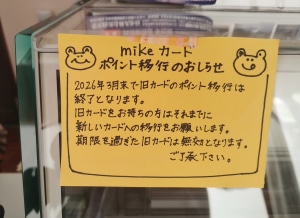 mikeカード
ポイント移行のおしらせ
2026年3月末で旧カードのポイント移行は
終了となります。
旧カードをお持ちの方はそれまでに
新しいカードへの移行をお願いします。
期限を過ぎた旧カードは無効となります。
ご了承下さい。